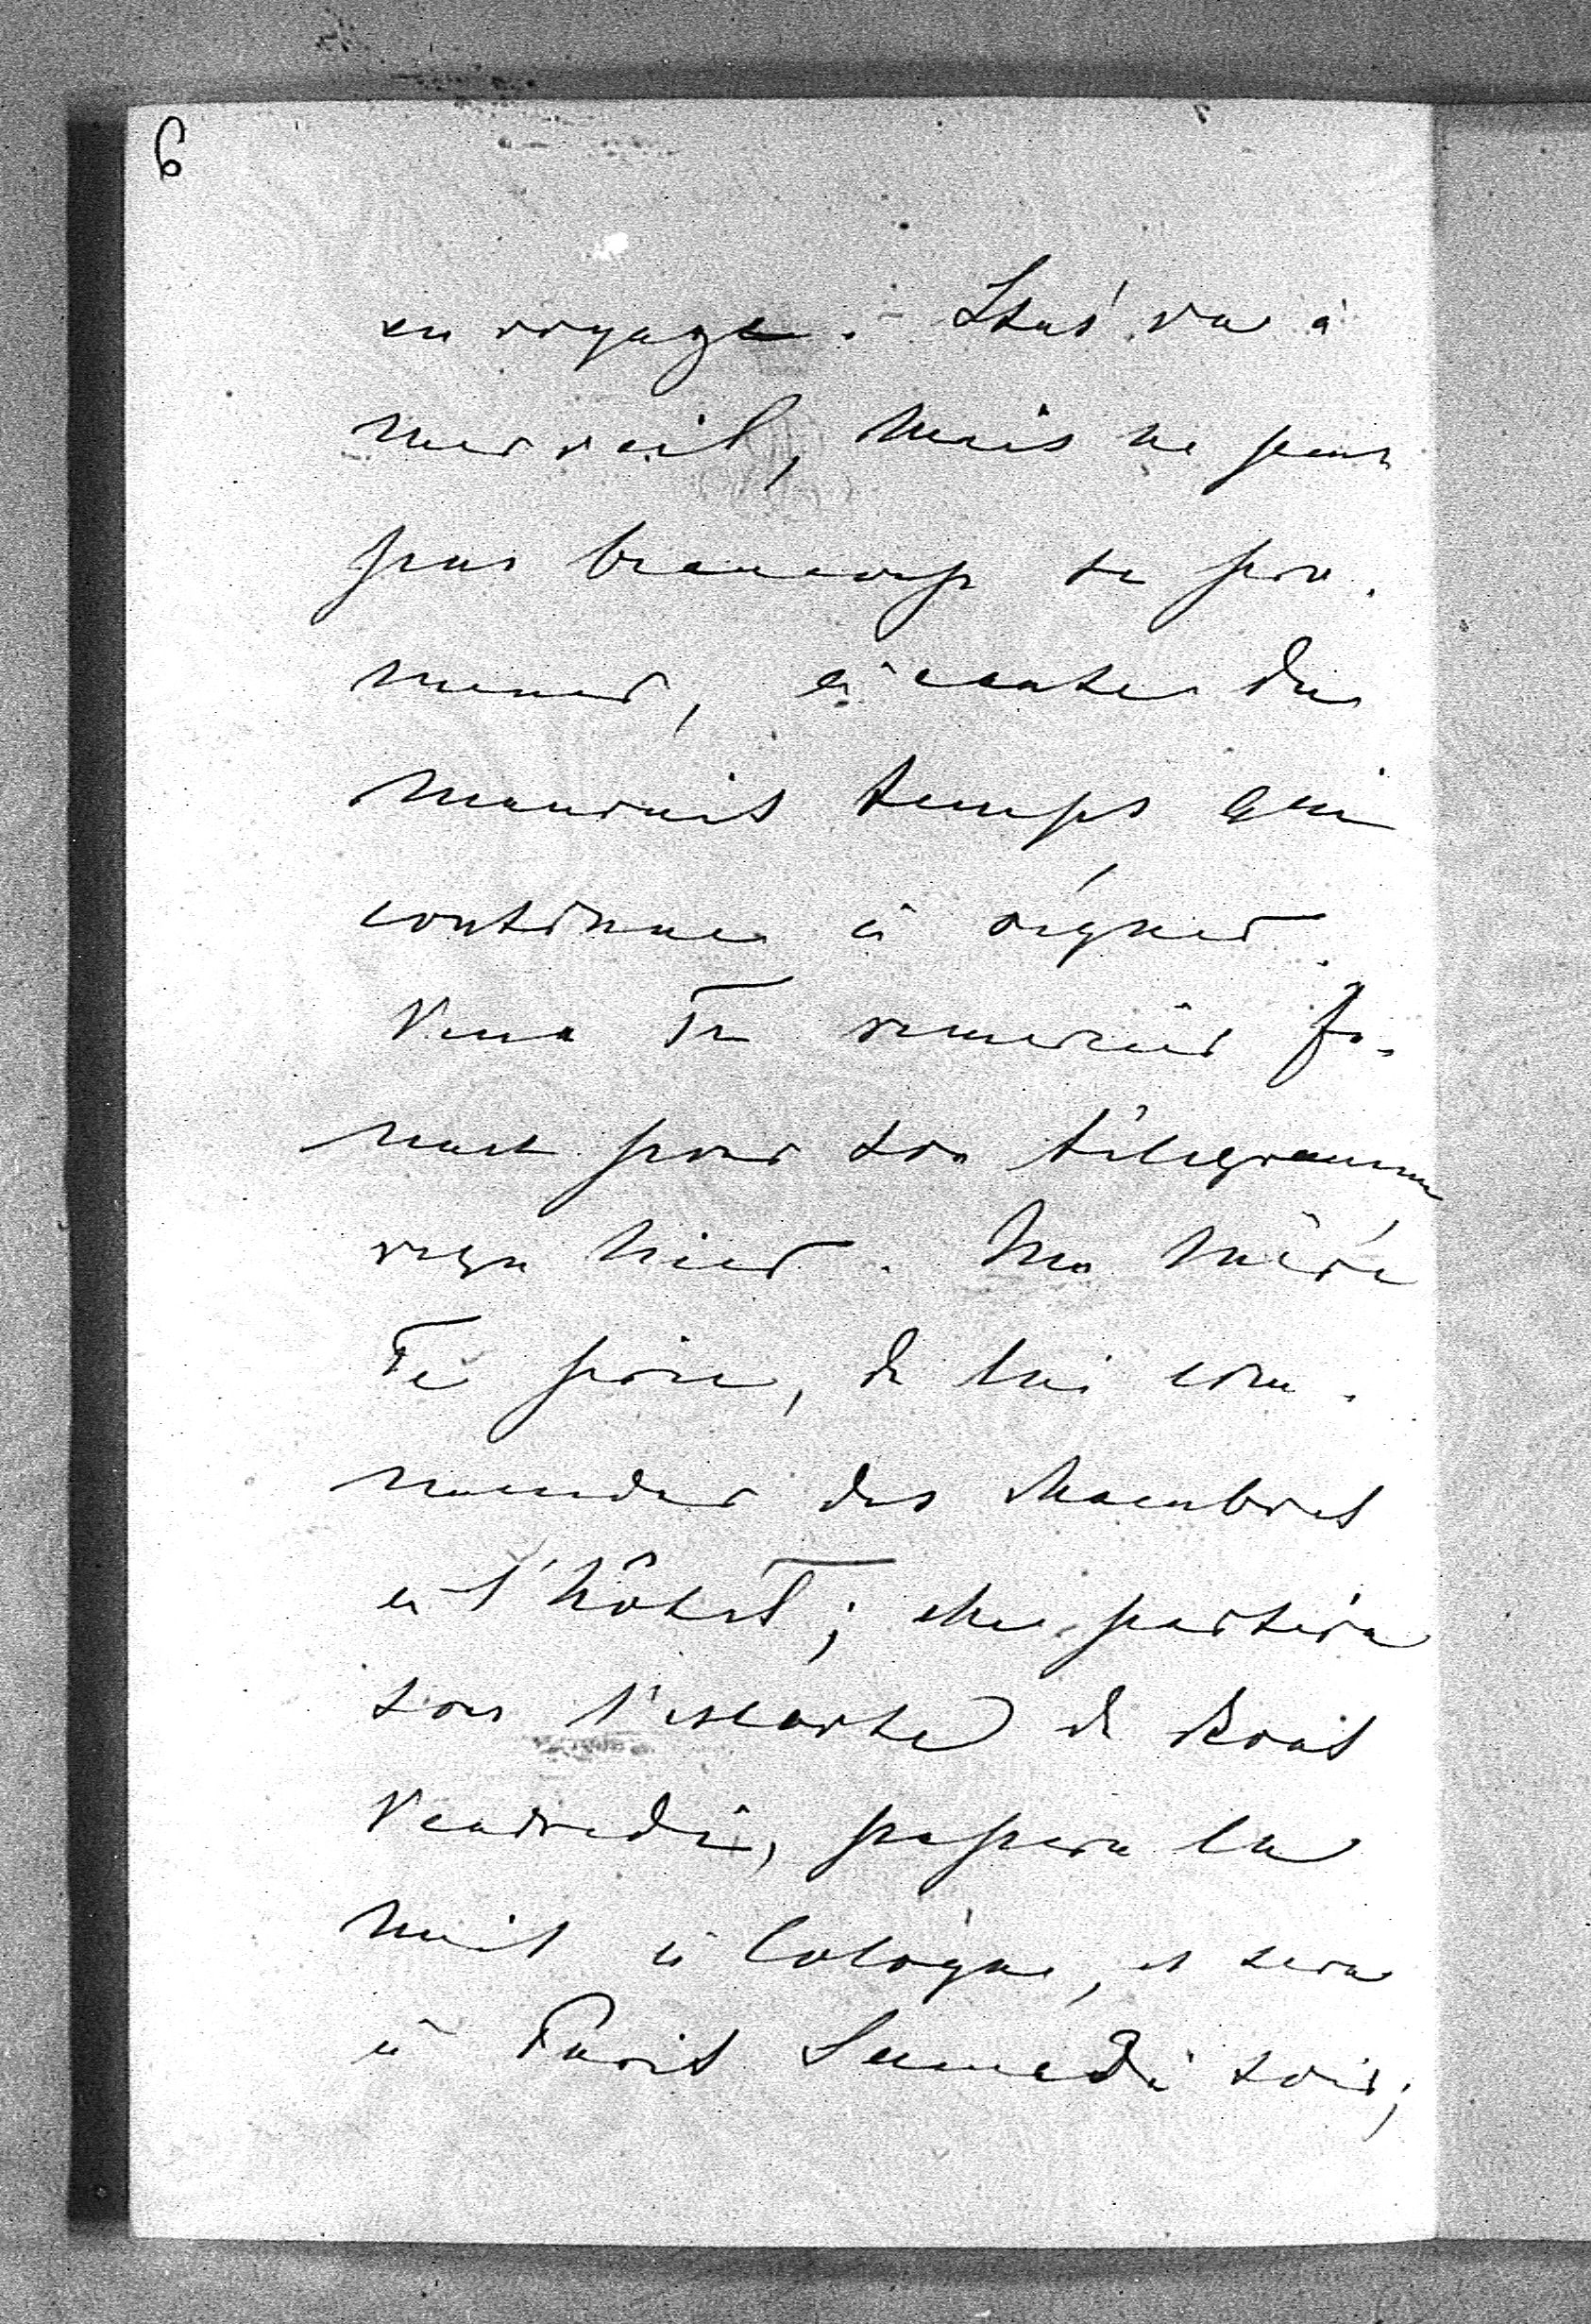 6
en voyage. Stas' va à
merveil, mais ne peut
pas beaucoup se pro-
mener, à cause du
mauvais temps qui
continue à régner.
Vera Te remercie fo-
ment pour ton télégramme
reçu hier. Ma mère
Te prie, de lui com-
mander des chambres
à l'hôtel; elle partira
sous l'escorte de
Vendredi, passera la
nuit à Cologne, et sera
à Paris Samedi soir;